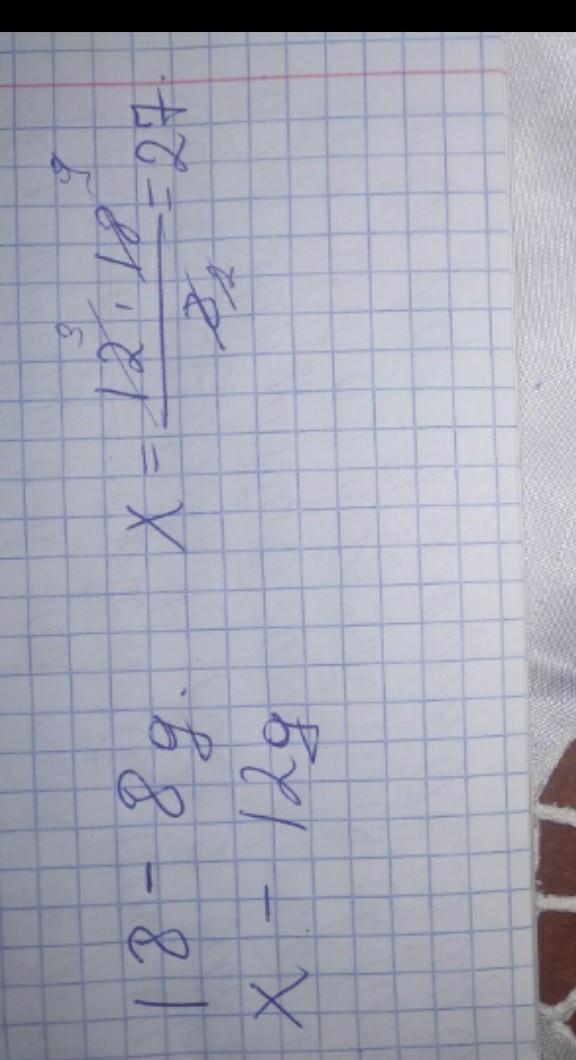 18 - 8 g.
x - 12 g
x = 12 · 18 / 8 = 27.
3 9
2